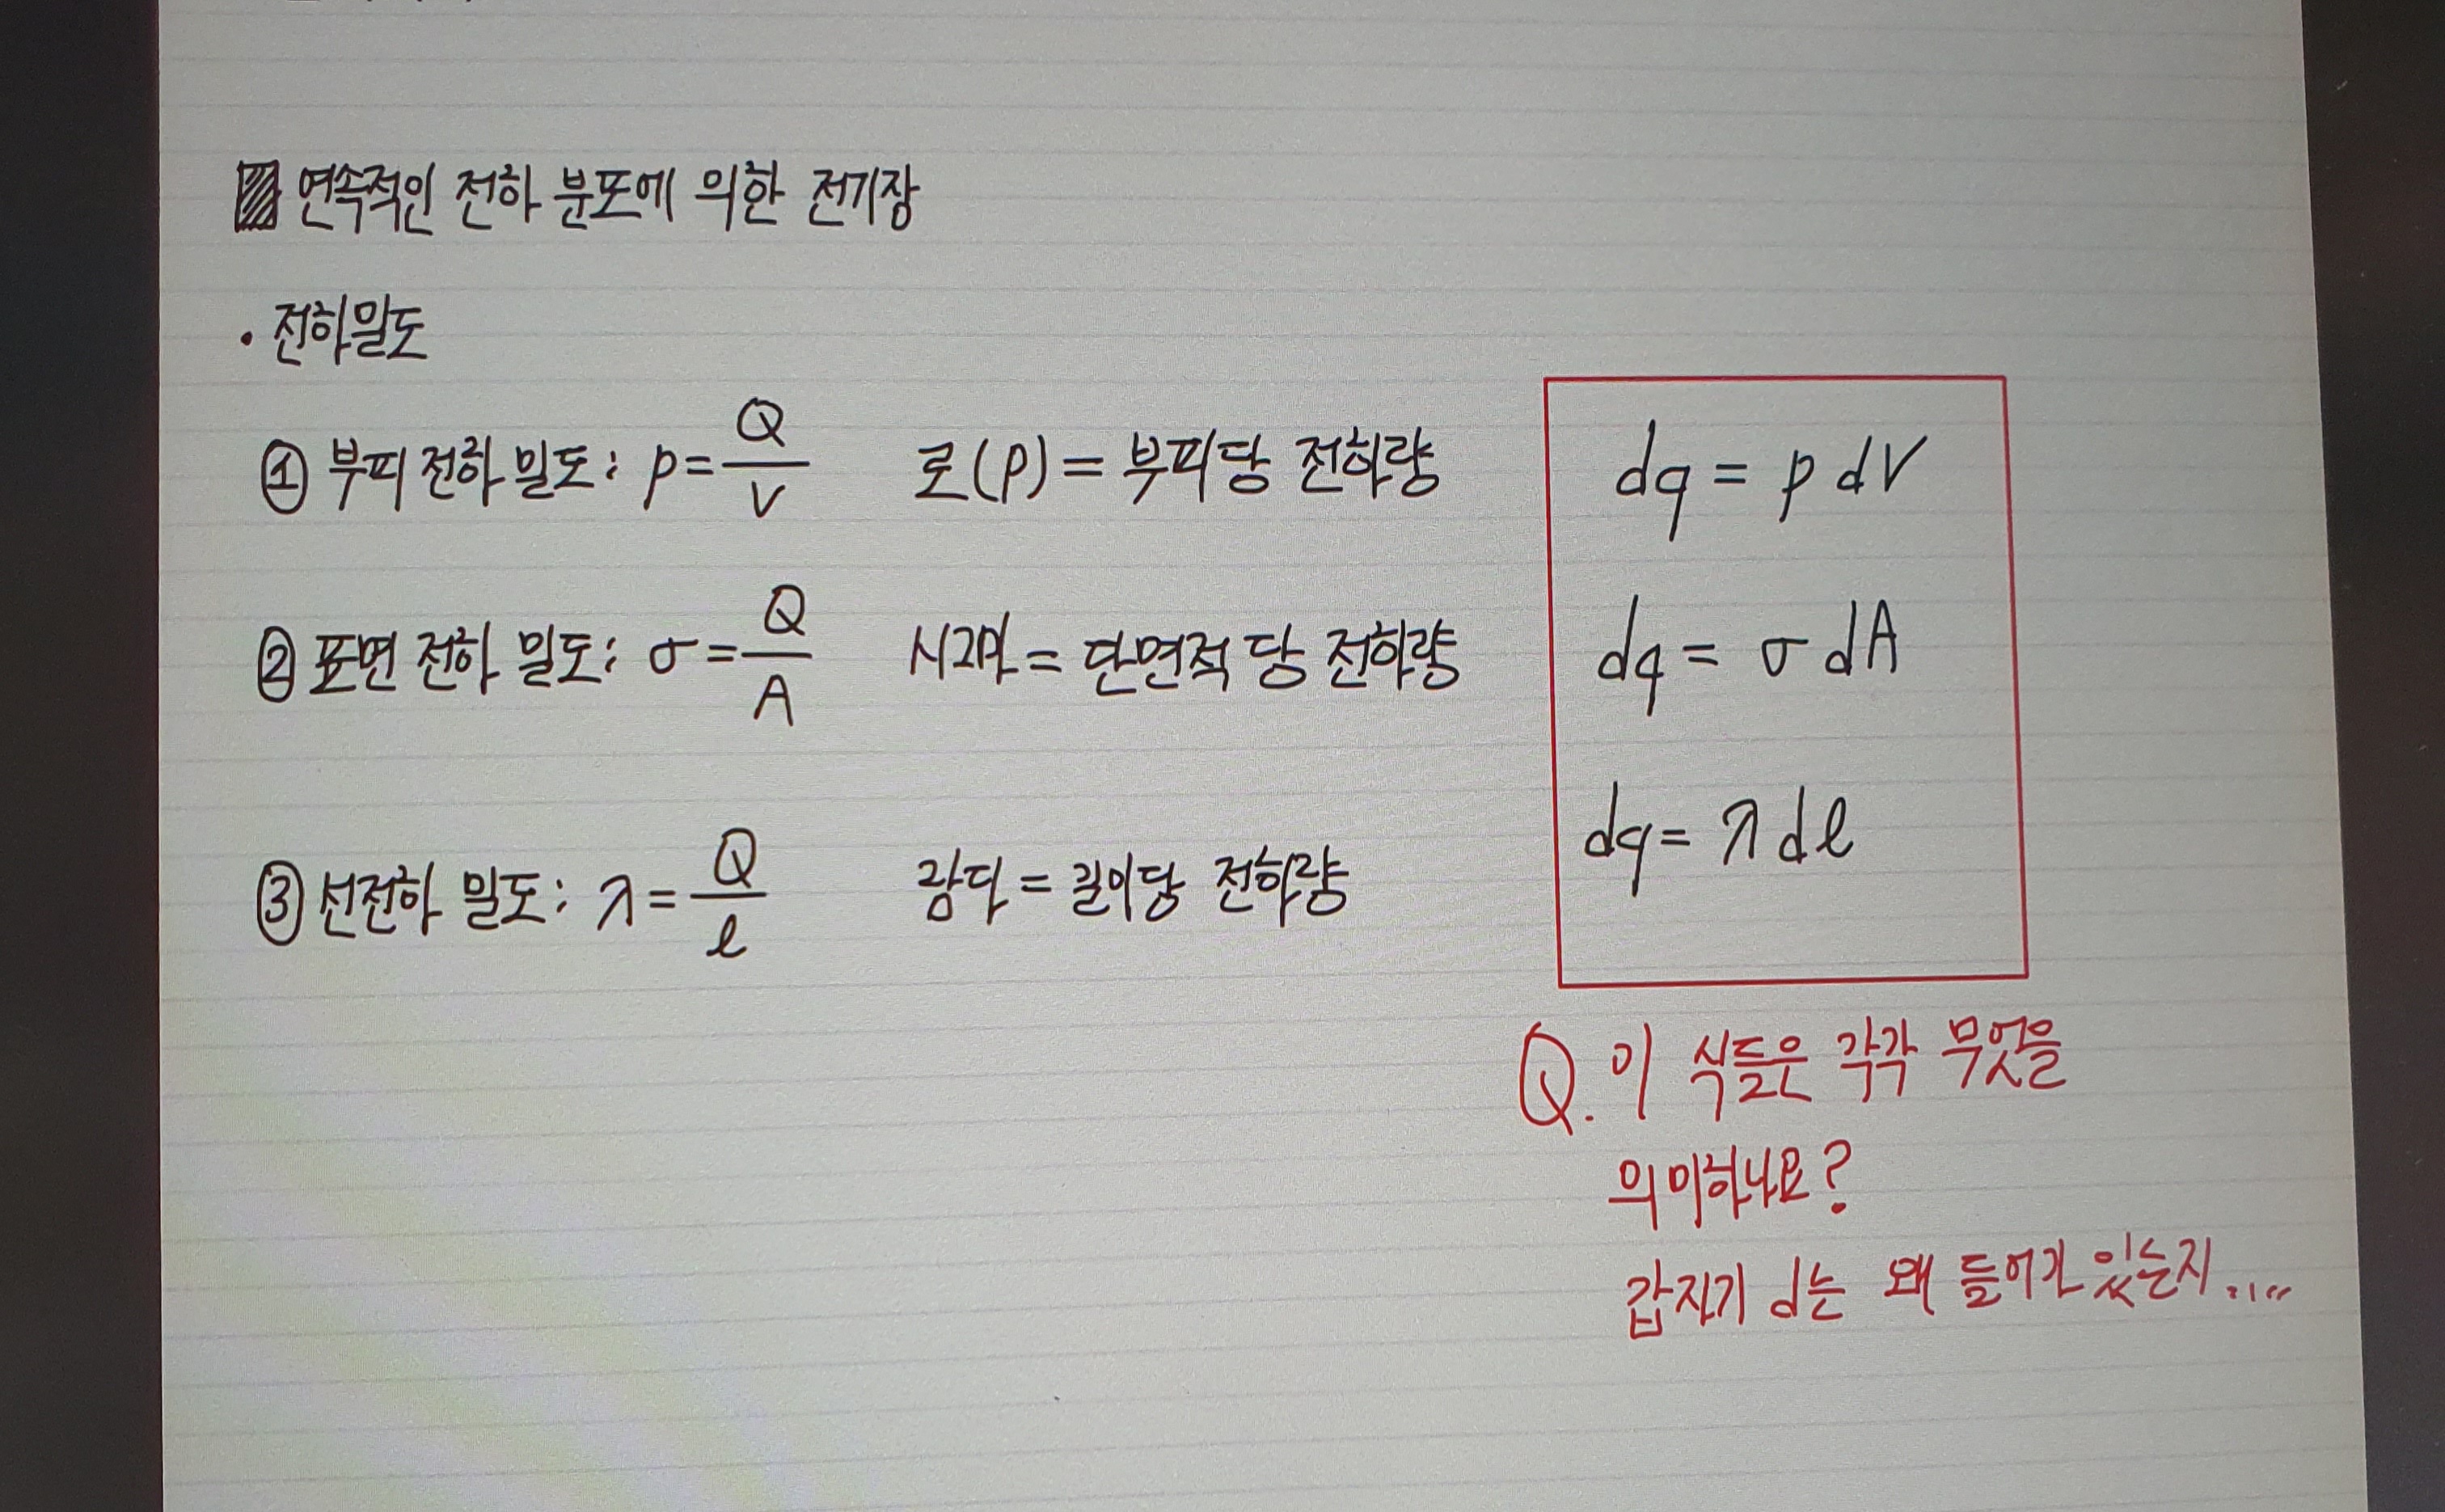 연속적인 전하 분포에 의한 전기장
· 전하밀도
① 부피 전하 밀도 : ρ = Q/V 로(ρ) = 부피당 전하량 dq = ρ dV
② 표면 전하 밀도 : σ = Q/A 시그마 = 단면적 당 전하량 dq = σ dA
③ 선전하 밀도 : λ = Q/ℓ 람다 = 길이당 전하량 dq = λ dℓ
Q. 이 식들은 각각 무엇을
의미하나요?
갑자기 d는 왜 들어가 있는지.....